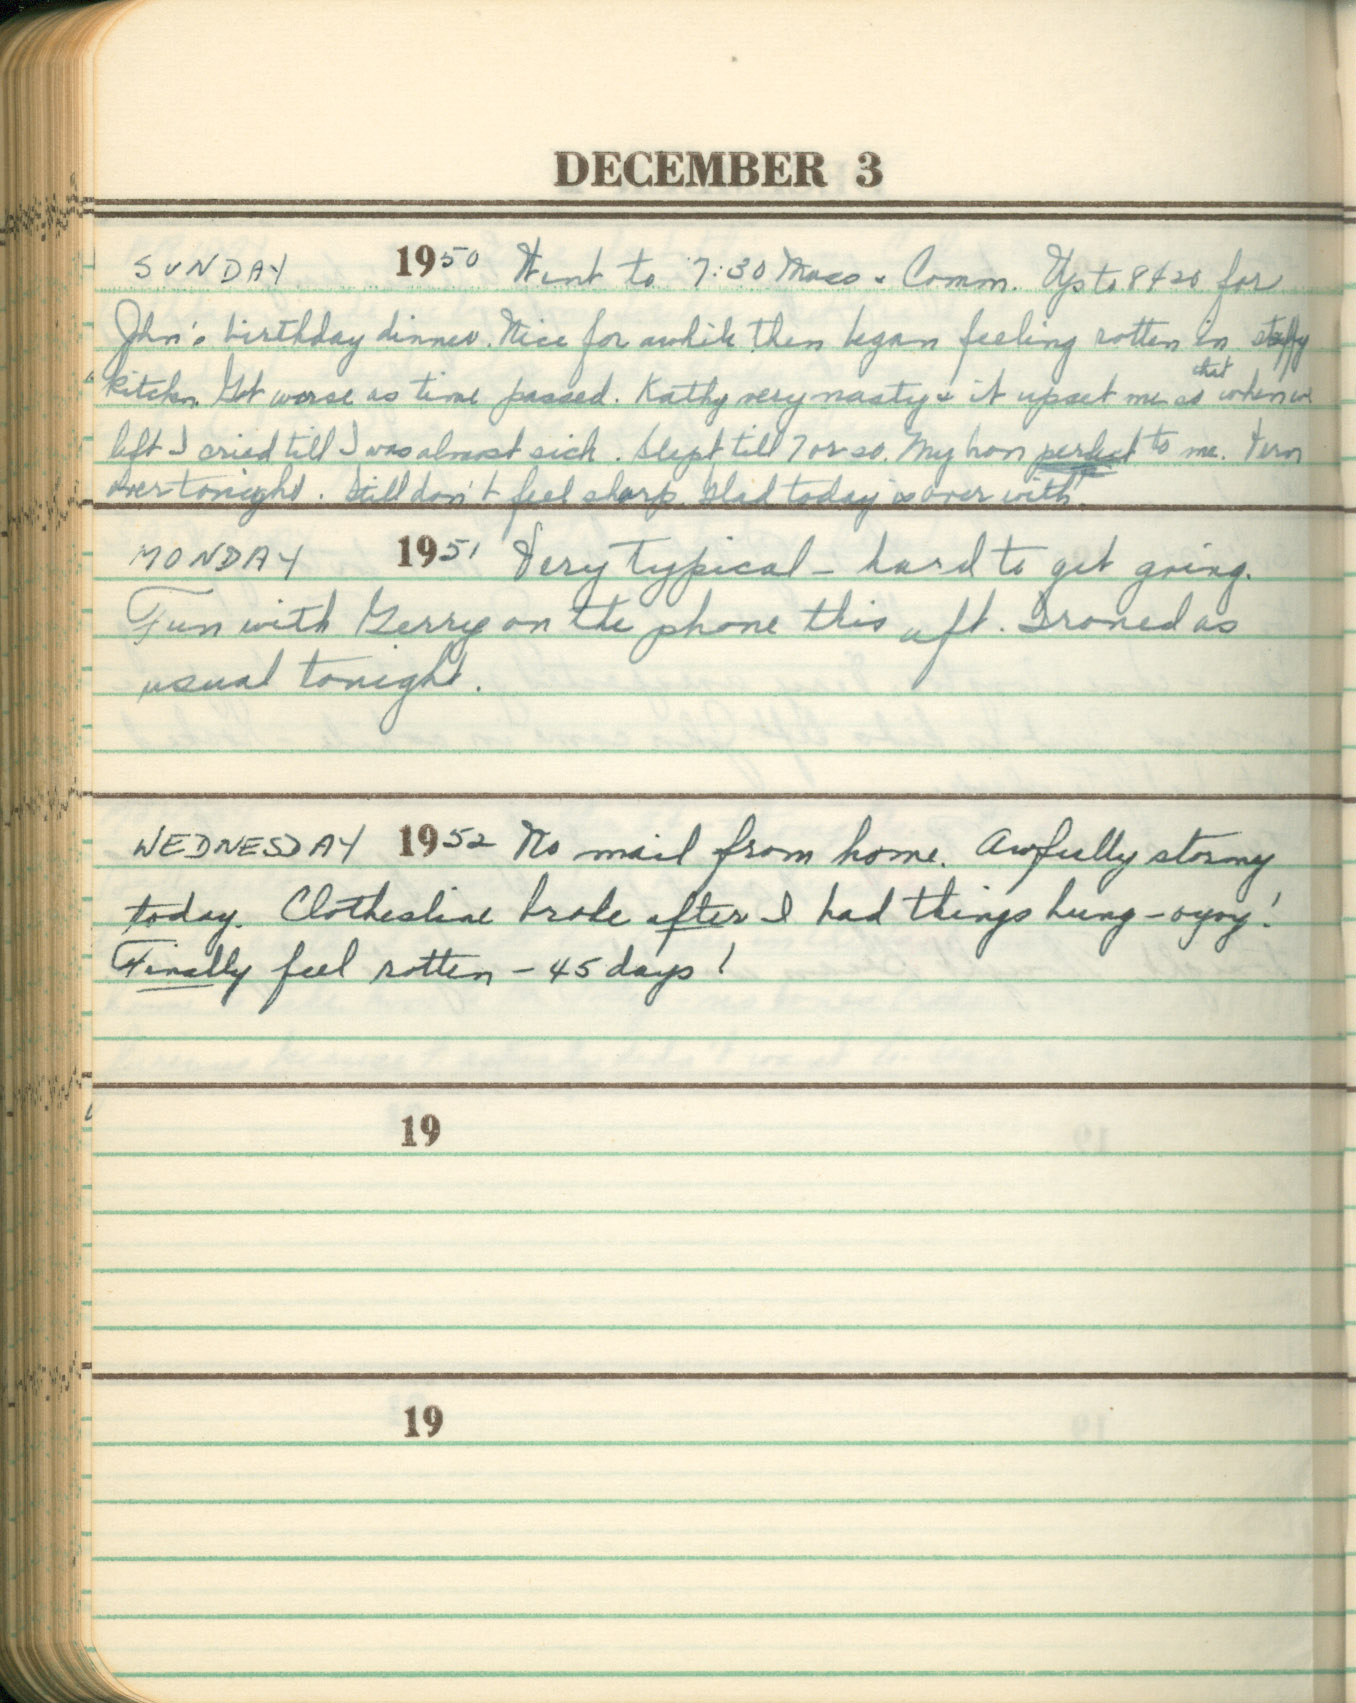 DECEMBER 3
SUNDAY 1950 Went to 7:30 Mass & Comm. Up to 8420 for
John's birthday dinner. Nice for awhile then began feeling rotten in stuffy
kitchen. Got worse as time passed. Kathy very nasty & it upset me so that when we
left I cried till I was almost sick. Slept till 7 or so. My hon perfect to me. Vern
over tonight. Still don't feel sharp. Glad today is over with.
MONDAY 1951 Very typical - hard to get going.
Fun with Gerry on the phone this aft. Ironed as
usual tonight.
WEDNESDAY 1952 No mail from home. Awfully stormy
today. Clothesline broke after I had things hung - oyoy!
Finally feel rotten - 45 days!
19
19